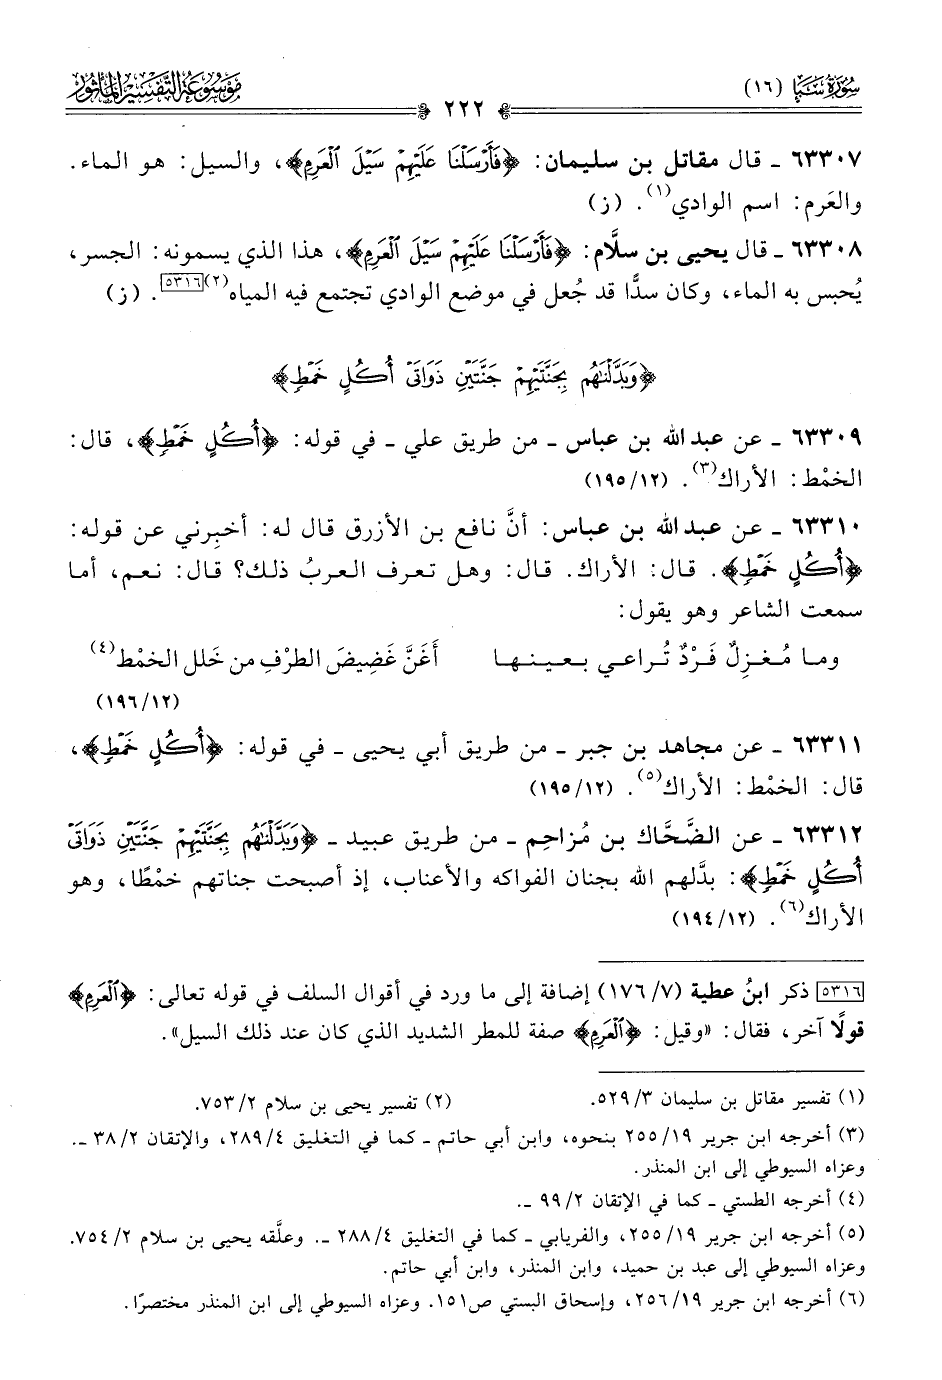 سُورَةُ سَبَإٍ (١٦)
٢٢٢
مَوْسُوعَةُ التَّفْسِيرِ المَأْثُورِ
٦٣٣٠٧ ـ قال مقاتل بن سليمان: ﴿فَأَرْسَلْنَا عَلَيْهِمْ سَيْلَ الْعَرِمِ﴾، والسيل: هو الماء.
والعَرم: اسم الوادي(١). (ز)
٦٣٣٠٨ ـ قال يحيى بن سلَّام: ﴿فَأَرْسَلْنَا عَلَيْهِمْ سَيْلَ الْعَرِمِ﴾، هذا الذي يسمونه: الجسر،
يُحبس به الماء، وكان سدًّا قد جُعل في موضع الوادي تجتمع فيه المياه(٢)[٥٣١٦]. (ز)
﴿وَبَدَّلْنَاهُم بِجَنَّتَيْهِمْ جَنَّتَيْنِ ذَوَاتَىْ أُكُلٍ خَمْطٍ﴾
٦٣٣٠٩ ـ عن عبد الله بن عباس ـ من طريق علي ـ في قوله: ﴿أُكُلٍ خَمْطٍ﴾، قال:
الخمْط: الأراك(٣). (١٩٥/١٢)
٦٣٣١٠ ـ عن عبد الله بن عباس: أنَّ نافع بن الأزرق قال له: أخبِرني عن قوله:
﴿أُكُلٍ خَمْطٍ﴾. قال: الأراك. قال: وهل تعرف العربُ ذلك؟ قال: نعم، أما
سمعت الشاعر وهو يقول:
وما مُغزِلٌ فَرْدٌ تُراعي بعينها    أَغَنَّ غَضِيضَ الطرْفِ من خَلل الخمْط(٤)
(١٩٦/١٢)
٦٣٣١١ ـ عن مجاهد بن جبر ـ من طريق أبي يحيى ـ في قوله: ﴿أُكُلٍ خَمْطٍ﴾،
قال: الخمْط: الأراك(٥). (١٩٥/١٢)
٦٣٣١٢ ـ عن الضَّحَّاك بن مُزاحِم ـ من طريق عبيد ـ ﴿وَبَدَّلْنَاهُم بِجَنَّتَيْهِمْ جَنَّتَيْنِ ذَوَاتَىْ
أُكُلٍ خَمْطٍ﴾: بدَّلهم الله بجنان الفواكه والأعناب، إذ أصبحت جناتهم خمْطًا، وهو
الأراك(٦). (١٩٤/١٢)
[٥٣١٦] ذكر ابنُ عطية (١٧٦/٧) إضافة إلى ما ورد في أقوال السلف في قوله تعالى: ﴿الْعَرِمِ﴾
قولًا آخر، فقال: «وقيل: ﴿الْعَرِمِ﴾ صفة للمطر الشديد الذي كان عند ذلك السيل».
(١) تفسير مقاتل بن سليمان ٥٢٩/٣.    (٢) تفسير يحيى بن سلام ٧٥٣/٢.
(٣) أخرجه ابن جرير ٢٥٥/١٩ بنحوه، وابن أبي حاتم ـ كما في التغليق ٢٨٩/٤، والإتقان ٣٨/٢ ـ.
وعزاه السيوطي إلى ابن المنذر.
(٤) أخرجه الطستي ـ كما في الإتقان ٩٩/٢ ـ.
(٥) أخرجه ابن جرير ٢٥٥/١٩، والفريابي ـ كما في التغليق ٢٨٨/٤ ـ. وعلَّقه يحيى بن سلام ٧٥٤/٢.
وعزاه السيوطي إلى عبد بن حميد، وابن المنذر، وابن أبي حاتم.
(٦) أخرجه ابن جرير ٢٥٦/١٩، وإسحاق البستي ص١٥١. وعزاه السيوطي إلى ابن المنذر مختصرًا.